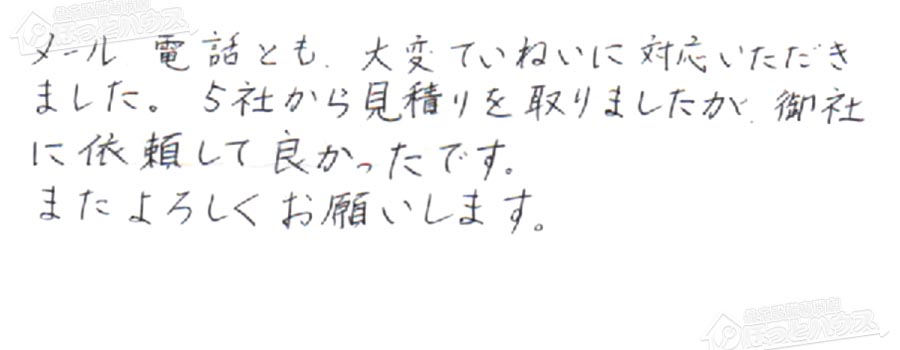 メール 電話とも、大変ていねいに対応いただき
ました。5社から見積りを取りましたが、御社
に依頼して良かったです。
またよろしくお願いします。
ほっとハウス
ほっとハウス